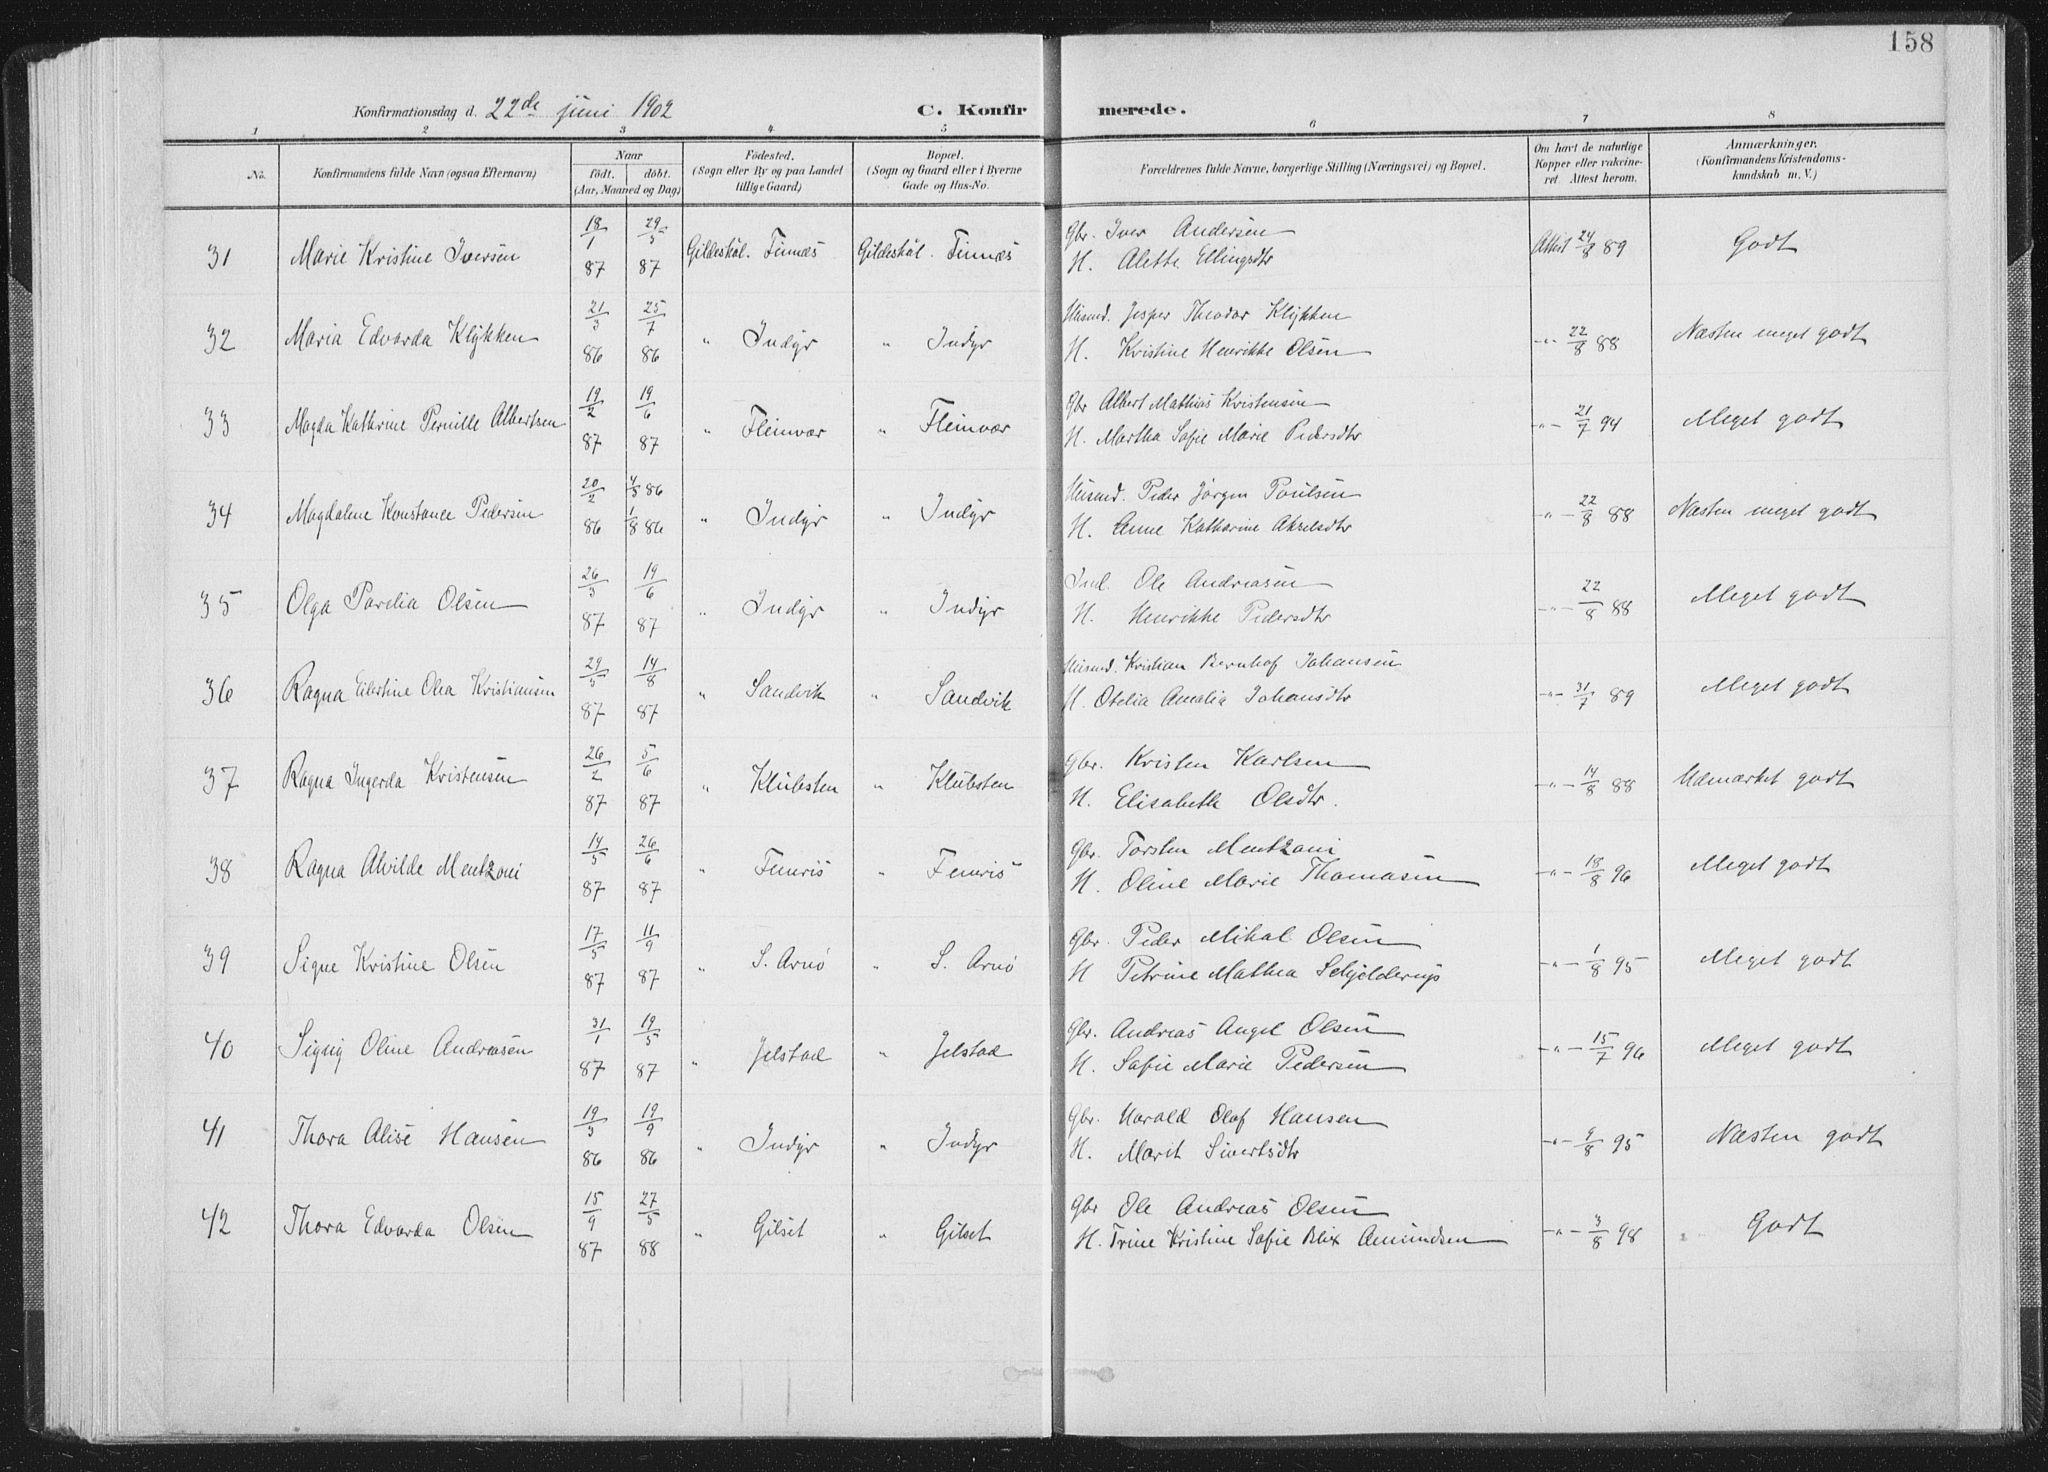 158
Konfirmationsdag d. 22de juni 1902 C. Konfirmerede.
1 2 3 4 5 6 7 8
No. Konfirmandens fulde Navn (ogsaa Efternavn) Naar födt. döbt. (Aar, Maaned og Dag) Födested. (Sogn eller By og paa Landet tillige Gaard) Bopæl. (Sogn og Gaard eller i Byerne Gade og Hus-No. Forældrenes fulde Navne, borgerlige Stilling (Næringsvei) og Bopæl. Om havt de naturlige Kopper eller vakcineret. Attest herom. Anmærkninger. (Konfirmandens Kristendomskundskab m. V.)
31 Marie Kristine Iversen 18/1 87 29/5 87 Gildeskål. Finnæs Gildeskål. Finnæs Gbr. Iver Andersen Attest 24/8 89 Godt
H. Alette Ellingsdtr
32 Maria Edvarda Klykken 21/3 86 25/7 86 " Indyr " Indyr Husmd. Jesper Theodor Klykken -"- 22/8 88 Næsten meget godt
H. Kristine Henrikke Olsen
33 Magda Kathrine Pernille Albertsen 19/2 87 19/6 87 " Fleinvær " Fleinvær Gbr Albert Mathias Kristensen -"- 21/7 94 Meget godt
H. Martha Sofie Marie Pedersdtr
34 Magdalene Konstance Pedersen 20/2 86 4/5 86 1/8 86 " Indyr " Indyr Husmd. Peder Jørgen Poulsen -"- 22/8 88 Næsten meget godt
H. Anne Katharine Akselsdtr
35 Olga Parelia Olsen 26/3 87 19/6 87 " Indyr " Indyr Ind. Ole Andreasen -"- 22/8 88 Meget godt
H. Henrikke Pedersdtr
36 Ragna Eilertine Olea Kristiansen 29/5 87 14/8 87 " Sandvik " Sandvik Husmd. Kristian Bernhof Johansen -"- 31/7 89 Meget godt
H. Otelia Amalia Johansdtr
37 Ragna Ingerda Kristensen 26/2 87 5/6 87 " Klubsten " Klubsten Gbr. Kristen Karlsen -"- 14/8 88 Udmærket godt
H. Elisabeth Olsdtr.
38 Ragna Alvilde Mentzoni 14/5 87 26/6 87 " Femris " Femris Gbr. Torsten Mentzoni -"- 18/8 96 Meget godt
H. Oline Marie Thomasen
39 Signe Kristine Olsen 17/5 87 11/9 87 " S. Arnø " S. Arnø Gbr. Peder Mikal Olsen -"- 1/8 95 Meget godt
H Petrine Mathea Schjelderup
40 Signy Oline Andreasen 31/1 87 19/5 87 " Jelstad " Jelstad Gbr. Andreas Angel Olsen -"- 15/7 96 Meget godt
H. Sofie Marie Pedersen
41 Thora Alise Hansen 19/3 86 19/9 86 " Indyr " Indyr Gbr. Harald Olaf Hansen -"- 9/8 95 Næsten godt
H. Marit Sivertsdtr
42 Thora Edvarda Olsen 15/9 87 27/5 88 " Gilset " Gilset Gbr Ole Andreas Olsen -"- 3/8 98 Godt
H. Trine Kristine Sofie Blix Amundsen